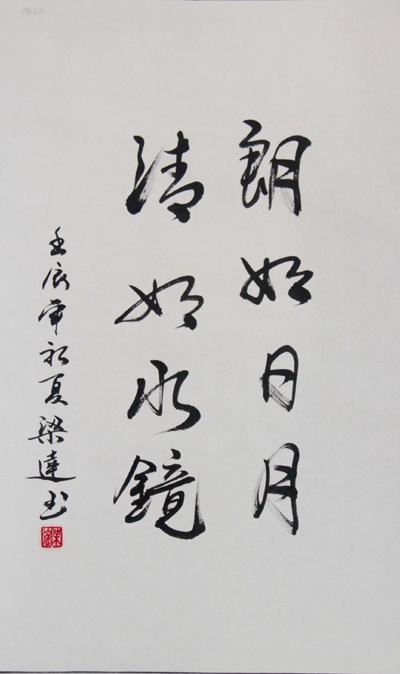 朗如日月
清如水鏡
壬辰年初夏梁達书